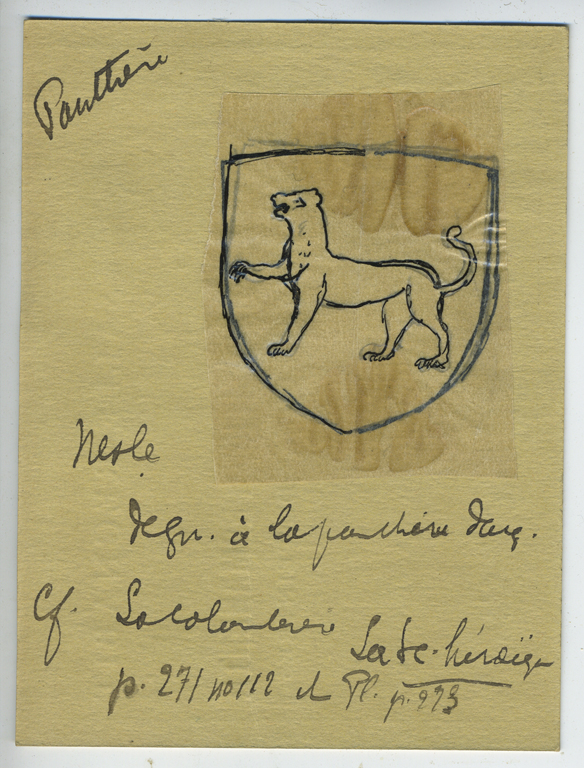 Panthère
Nesle
de gu. à la panthère d'arg.
Cf. La Colombière
La Sc. héroïque
p. 271 no 112 et Pl. p. 273